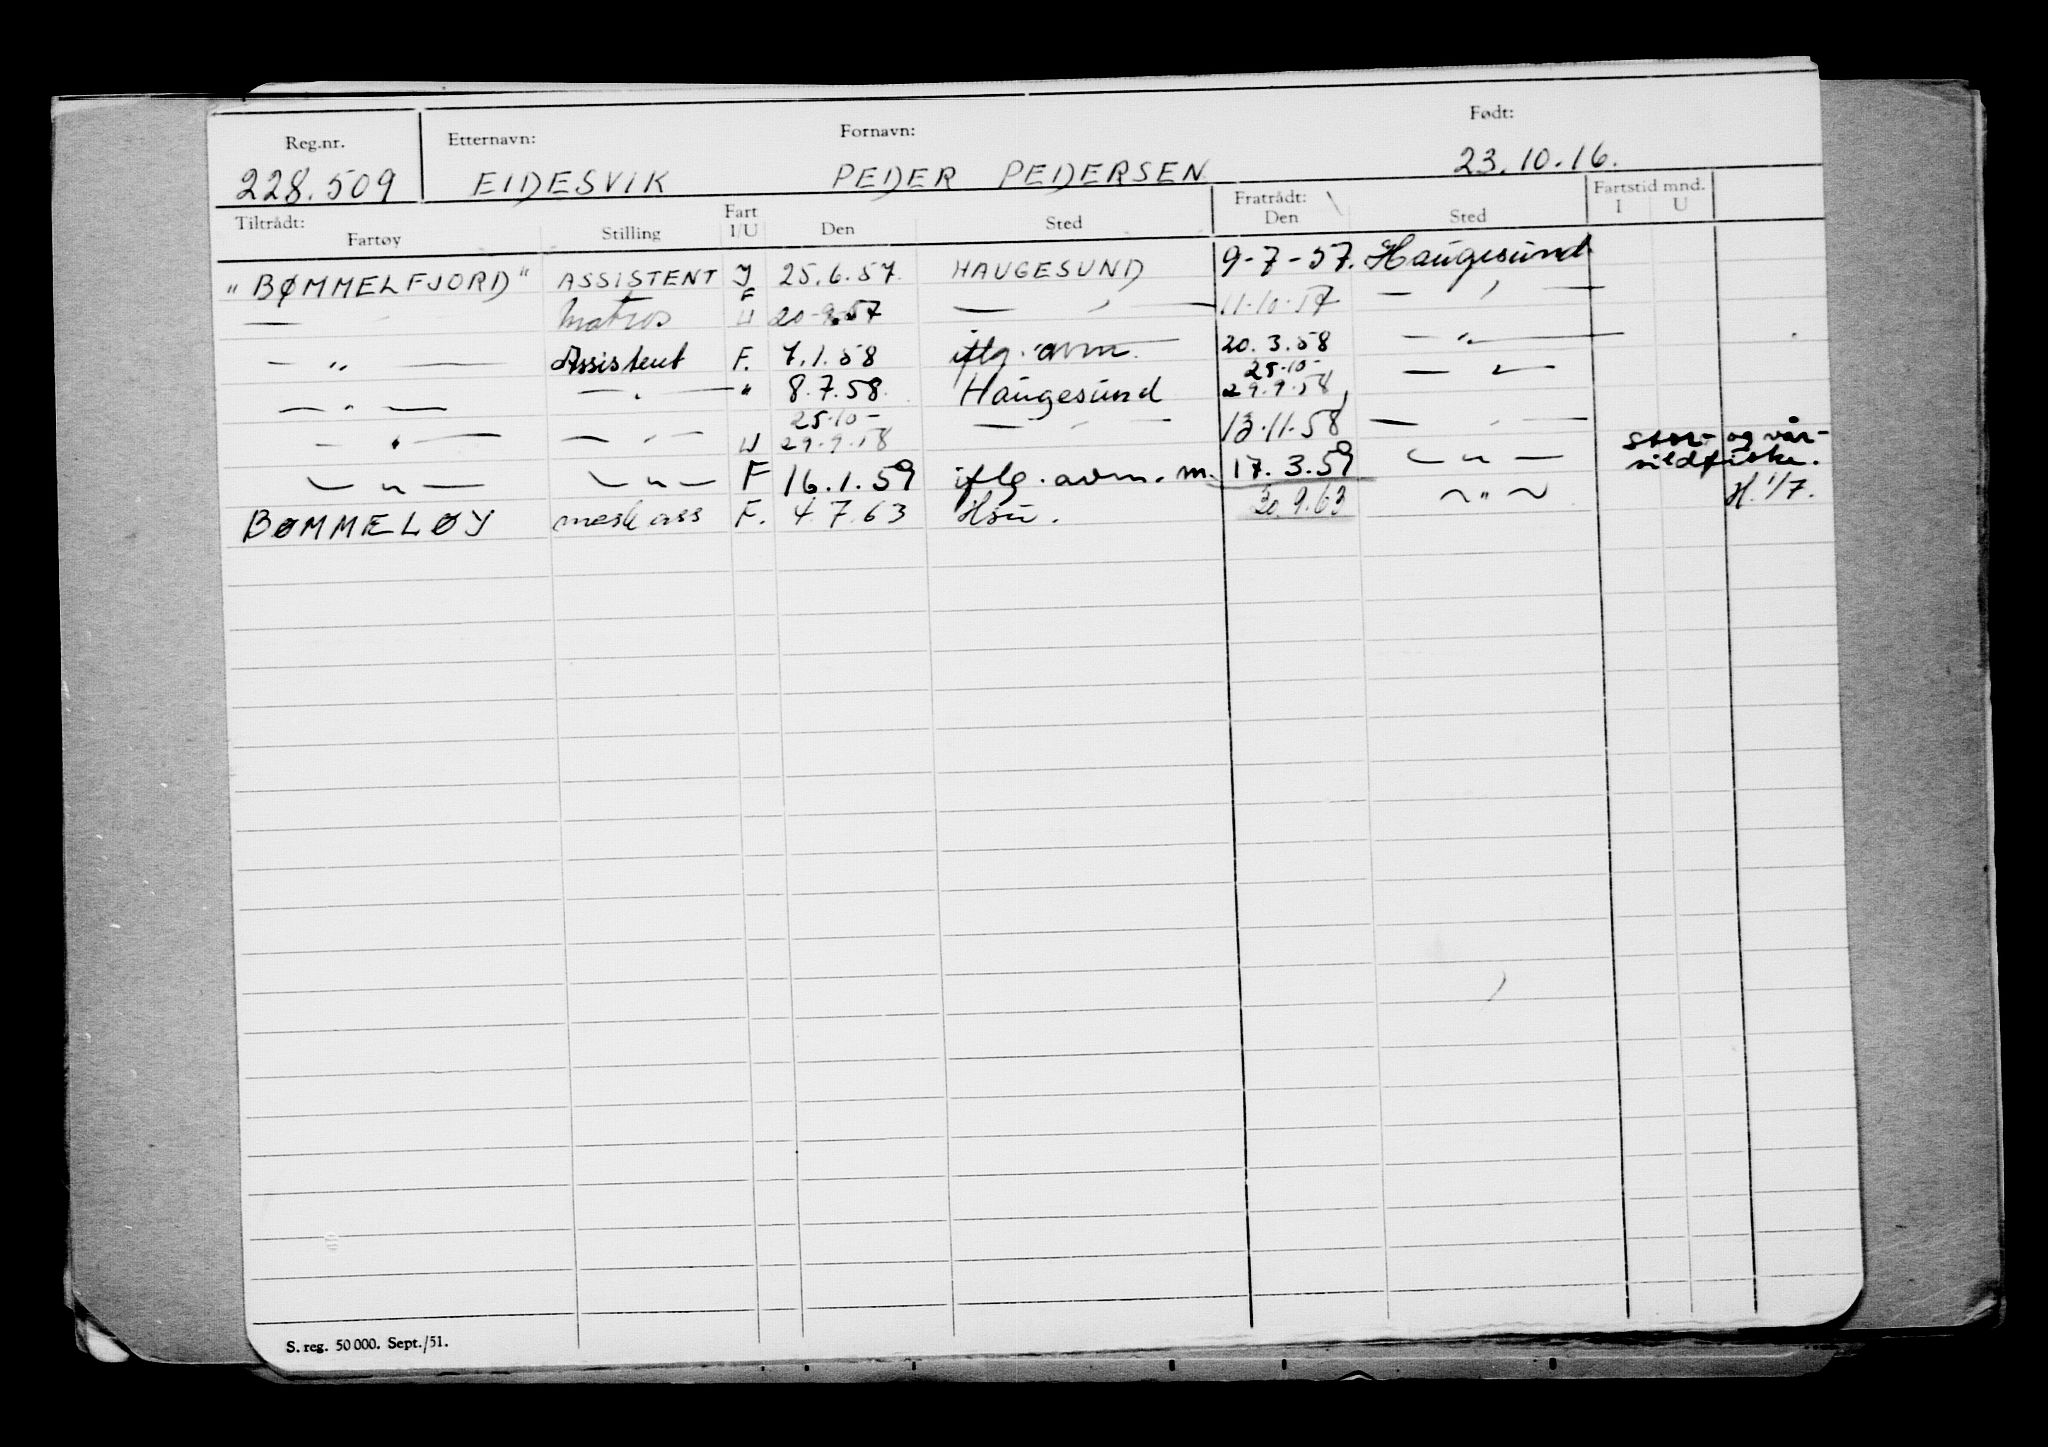 Reg.nr. Etternavn: Fornavn: Født:
228.509 EIDESVIK PEDER PEDERSEN 23.10.16.
Tiltrådt: Fartøy Stilling Fart I/U Den Sted Fratrådt: Den Sted Fartstid mnd. I U
"BØMMELFJORD" ASSISTENT J 25.6.57. HAUGESUND 9-7-57. Haugesund
— Matros U 20-9-57 — " — 11-10-57 — " —
— " — Assistent F. 7.1.58 iflg. avm. 20.3.58 — " —
— " — — " — " 8.7.58. Haugesund 25.10- 29.9.58 — " —
— " — — " — U 25.10- 29.9.58 — " — 13.11.58 — " —
— " — — " — F 16.1.59 iflg. avm. m. 17.3.59 — " — stor- og vår-
sildfiske.
BØMMELØY mask ass F. 4.7.63 Hsu. 30.9.63 ~ " ~ H. 1/7.
S. reg. 50 000. Sept./51.